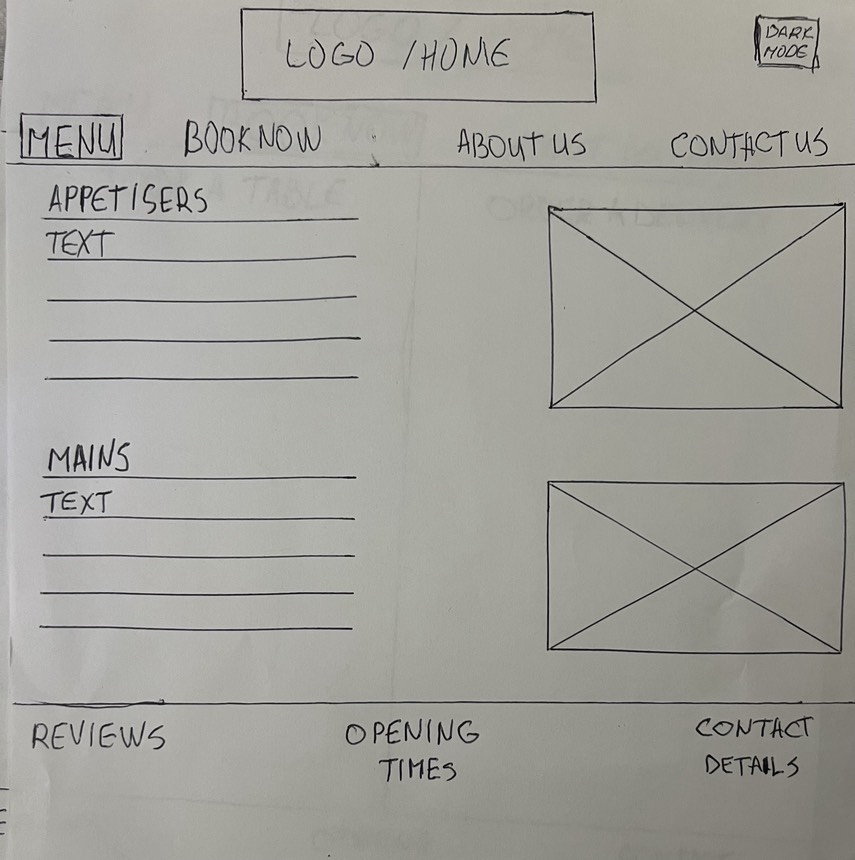 LOGO / HOME
DARK
MODE
MENU
BOOK NOW
ABOUT US
CONTACT US
APPETISERS
TEXT
MAINS
TEXT
REVIEWS
OPENING
TIMES
CONTACT
DETAILS